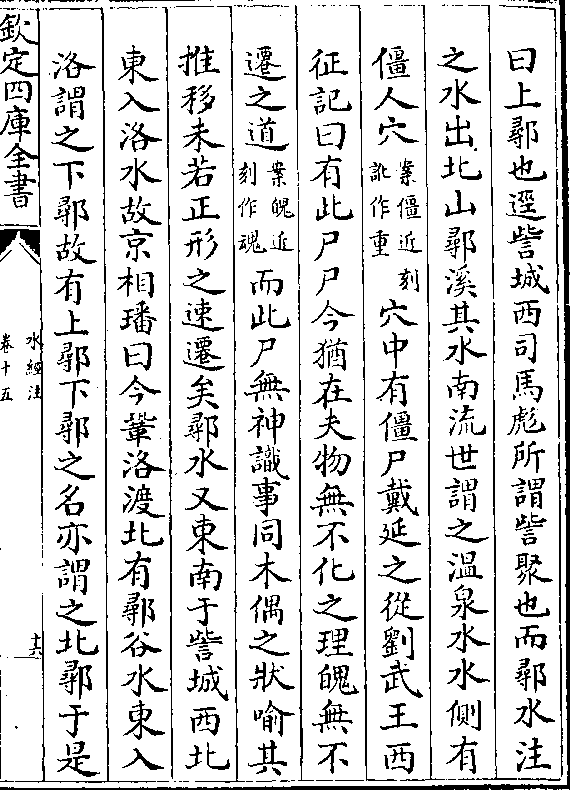 曰上鄩也逕訾城西司馬彪所謂訾聚也而鄩水注
之水出北山鄩溪其水南流世謂之溫泉水水側有
僵人穴案僵近刻訛作重穴中有僵尸戴延之從劉武王西
征記曰有此尸尸今猶在夫物無不化之理魄無不
遷之道案魄近刻作魂而此尸無神識事同木偶之狀喻其
推移未若正形之速遷矣鄩水又東南于訾城西北
東入洛水故京相璠曰今鞏洛渡北有鄩谷水東入
洛謂之下鄩故有上鄩下鄩之名亦謂之北鄩于是
欽定四庫全書
水經注
卷十五
十六